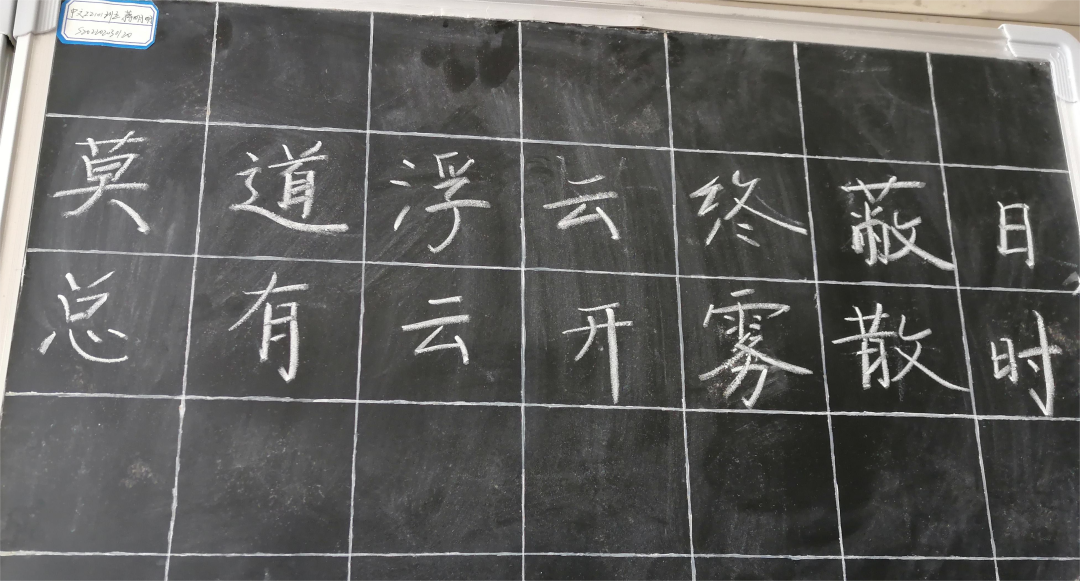 莫道浮云终蔽日
总有云开雾散时